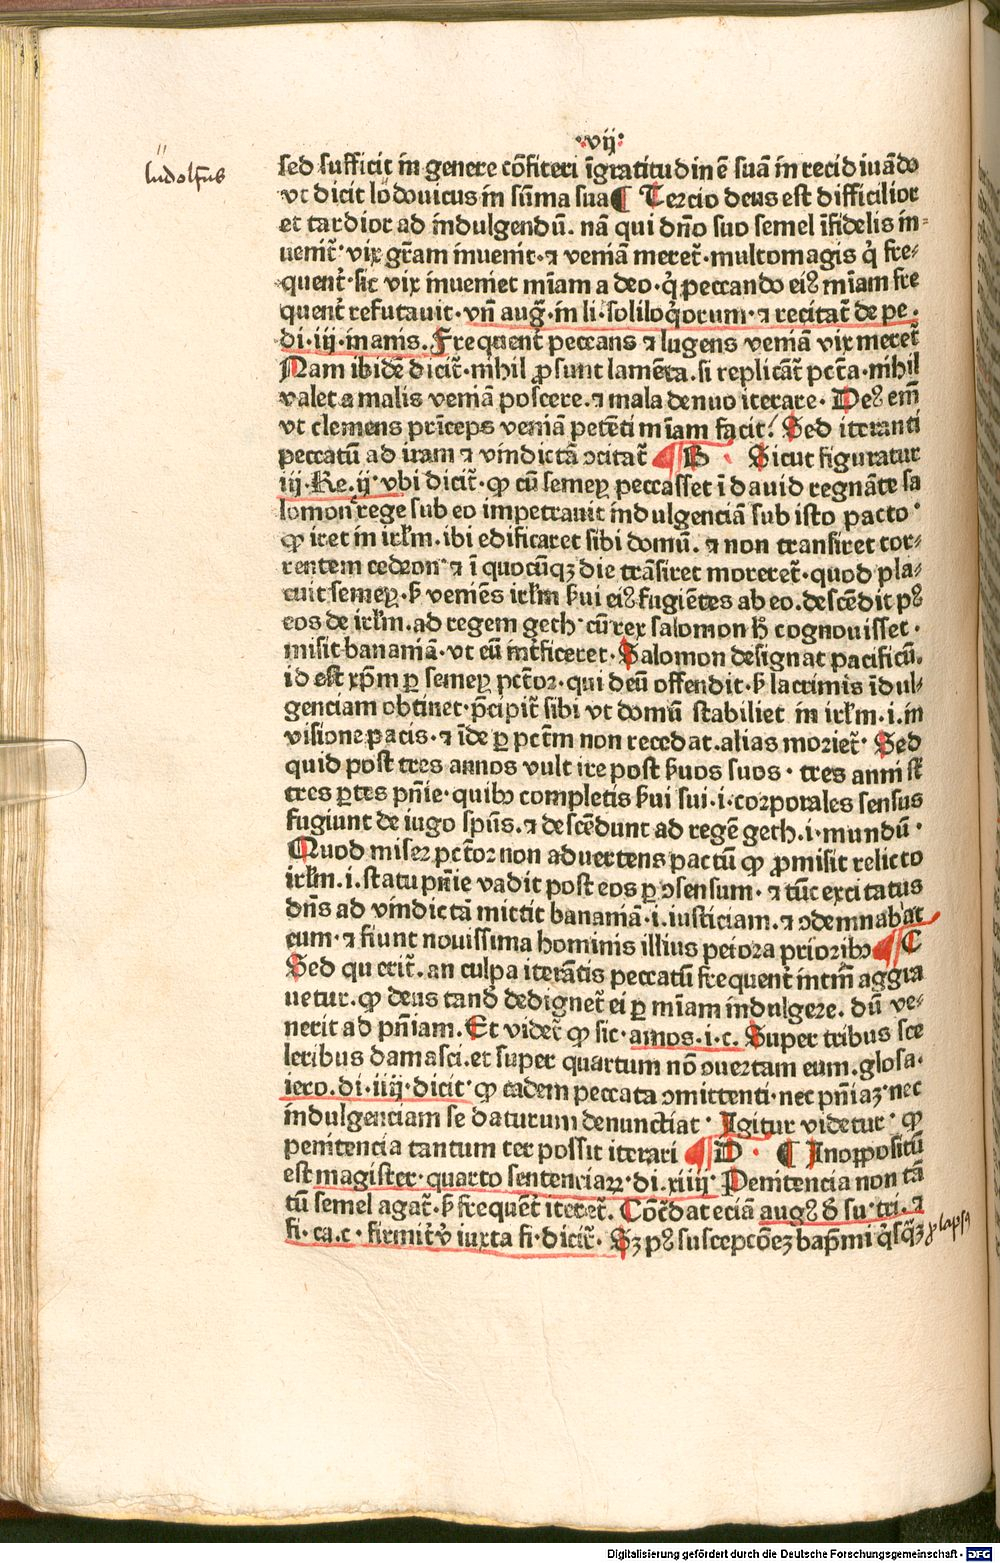 ·vij·
ludolfus
sed sufficit in genere cōfiteri īgratitudinē suā in recidiuādo
vt dicit lodouicus in sūma sua ¶ Tercio deus est difficilior
et tardior ad indulgendū. nā qui dño suo semel īfidelis in-
uenit᷑· vix gr̄am inuenit·⁊ veniā meret᷑·multomagis q̇ fre-
quent᷑·sic vix inueniet mīam a deo·q̇ peccando eiꝰ mīam fre
quent᷑ refutauit·vñ aug̃·in li·soliloq̇orum·⁊ recitat᷑ de pe·
di·iij·inanis. Frequent᷑ peccans ⁊ lugens veniā vix meret᷑
Nam ibidē dicit᷑·nihil ꝓsunt lamēta·si replicāt᷑ pctā·nihil
valet a malis veniā poscere·⁊ mala denuo iterare· Deꝰ em̄
vt clemens prīceps veniā petēti mīam facit· Sed iteranti
peccatū ad iram ⁊ vindictā ↄcitat᷑ ¶ B · Sicut figuratur
iij·Re·ij·vbi dicit᷑·ꝙ cū semeꝑ peccasset ī dauid regnāte sa
lomon rege sub eo impetrauit indulgenciā sub isto pacto·
ꝙ iret in irl̄m·ibi edificaret sibi domū·⁊ non transiret tor-
rentem cedron·⁊ ī quocūqꝫ die trāsiret moreret᷑·quod pla-
cuit semeꝑ·ẜ veniēs irl̄m ẜui eiꝰ fugiētes ab eo·descēdit pꝰ
eos de irl̄m·ad regem geth·cū rex salomon h̄ cognouisset·
misit bananiā·vt eū int᷑ficeret· Salomon designat pacificū·
id est xp̄m ꝑ semeꝑ pctōr·qui deū offendit·ẜ lacrimis īdul-
genciam obtinet·p̄cipit᷑ sibi vt domū stabiliet in irl̄m·i·in
visione pacis·⁊ īde ꝑ pctm̄ non recedat·alias moriet᷑· Sed
quid post tres annos vult ire post ẜuos suos· tres anni st̄
tres ꝑtes pn̄ie·quibꝯ completis ẜui sui·i·corporales sensus
fugiunt de iugo spūs·⁊ descēdunt ad regē geth·i·mundū·
Quod miser pctōr non aduertens pactū ꝙ ꝓmisit relicto
irl̄m·i·statu pn̄ie vadit post eos ꝑ ↄsensum·⁊ tūc excitatus
dn̄s ad vindictā mittit bananiā·i·iusticiam·⁊ ↄdemnabat
eum·⁊ fiunt nouissima hominis illius peiora prioribꝯ ¶ C
Sed querit᷑·an culpa iterātis peccatū frequent᷑ intm̄ aggra
uetur·ꝙ deus tandē dedignet᷑ ei ꝑ mīam indulgere·dū ve-
nerit ad pn̄iam· Et videt᷑ ꝙ sic·amos·i·c· Super tribus sce
leribus damasci·et super quartum nō ↄuertam eum·glosa·
iero·di·iiij·dicit᷑ ꝙ eadem peccata ↄmittenti·nec pn̄iaꝫ·nec
indulgenciam se daturum denunctiat· Igitur videtur·ꝙ
penitencia tantum ter possit iterari ¶ D · ¶ In oppositū
est magister·quarto sentenciaꝝ·di·xiiij· Penitencia non tā
tū semel agat᷑·ẜ frequēt᷑ iteret᷑· Cōc̄dat eciā augꝰ ō su·tri·⁊
fi·ca·c·firmit᷑·v᷑ iuxta fi·dicit᷑· Sꝫ pꝰ suscepcōeꝫ bap̄mi q̇sq̇ꝫ
ꝓ lapsꝰ
Digitalisierung gefördert durch die Deutsche Forschungsgemeinschaft - DFG